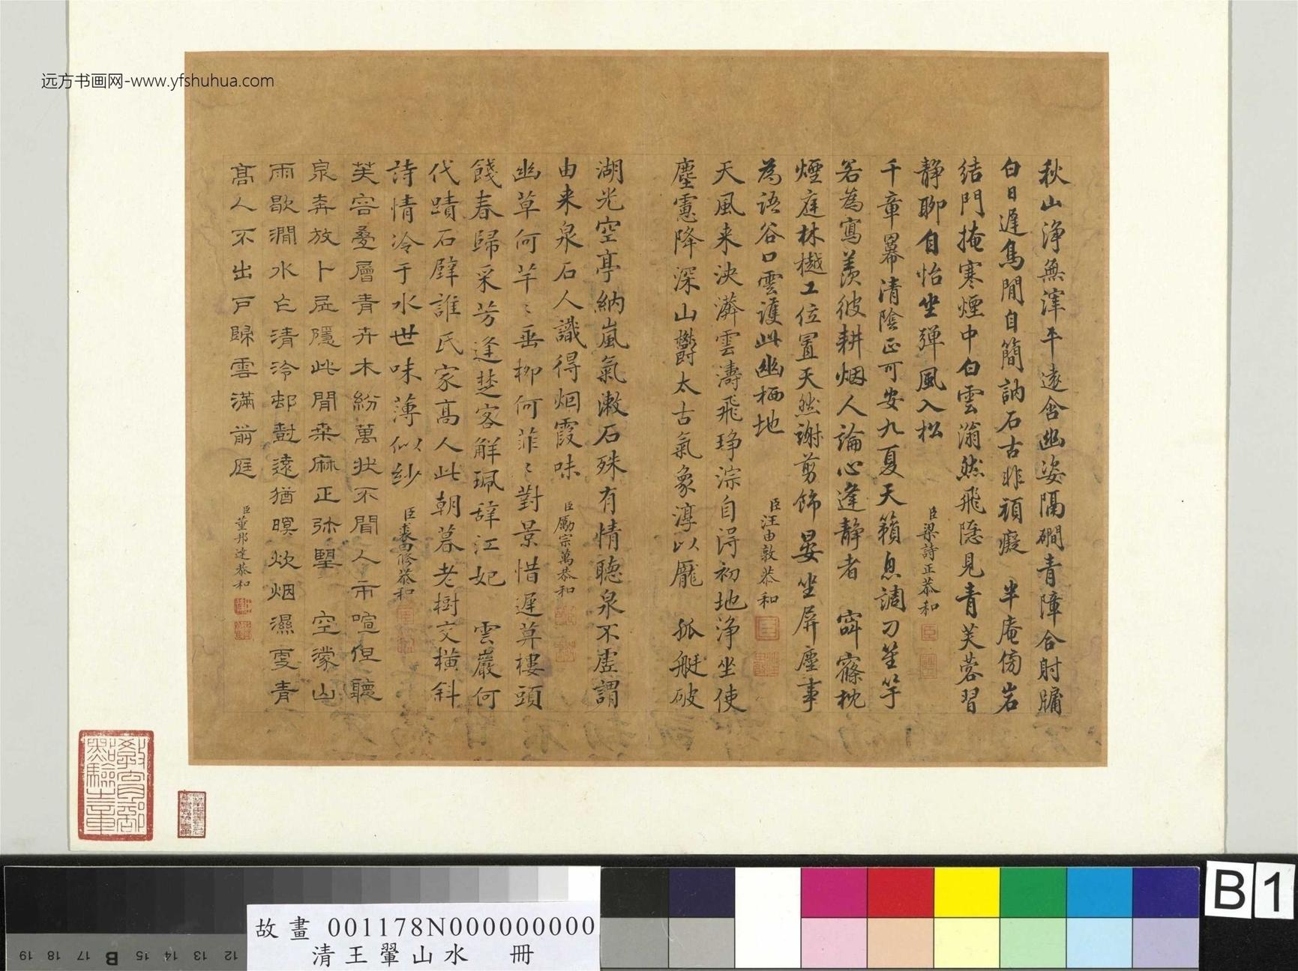 远方书画网-www.yfshuhua.com
秋山淨無滓平遠含幽姿隔磵青障合射牖
白日遲鳥閒自簡訥石古非頑癡 半庵倚岩
結門掩寒煙中白雲滃然飛隱見青芙蓉習
靜聊自怡坐彈風入松 臣梁詩正恭和
千章羃清陰正可安九夏天籟息調刁笙竽
若為寫羨彼耕烟人論心逢靜者 窗寮枕
煙庭林樾工位置天然謝剪飾晏坐屏塵事
為語谷口雲護此幽栖地 臣汪由敦恭和
天風来泱漭雲濤飛琤淙自淂初地淨坐使
塵慮降深山鬱太古氣象淳以厖 孤艇破
湖光空亭納嵐氣漱石殊有情聽泉不虛謂
由来泉石人識得烟霞味 臣勵宗萬恭和
幽草何芊〻垂柳何菲〻對景惜遲草樓頭
餞春歸采芳逢楚客解珮辭江妃 雲巖何
代蹟石壁誰氏家高人此朝暮老樹交橫斜
詩情冷于水世味薄似紗 臣裘曰修恭和
芙容疊層青卉木紛萬狀不聞人市喧但聽
泉奔放卜居隱此間桑麻正弥望 空濛山
雨歇澗水亡清泠邨謝遠猶暝炊烟濕更青
高人不出戶歸雲滿前庭 臣董邦達恭和
教育部點驗之章
故畫 001178N000000000
清王翬山水 冊
B1
19 18 17 B 15 14 13 12